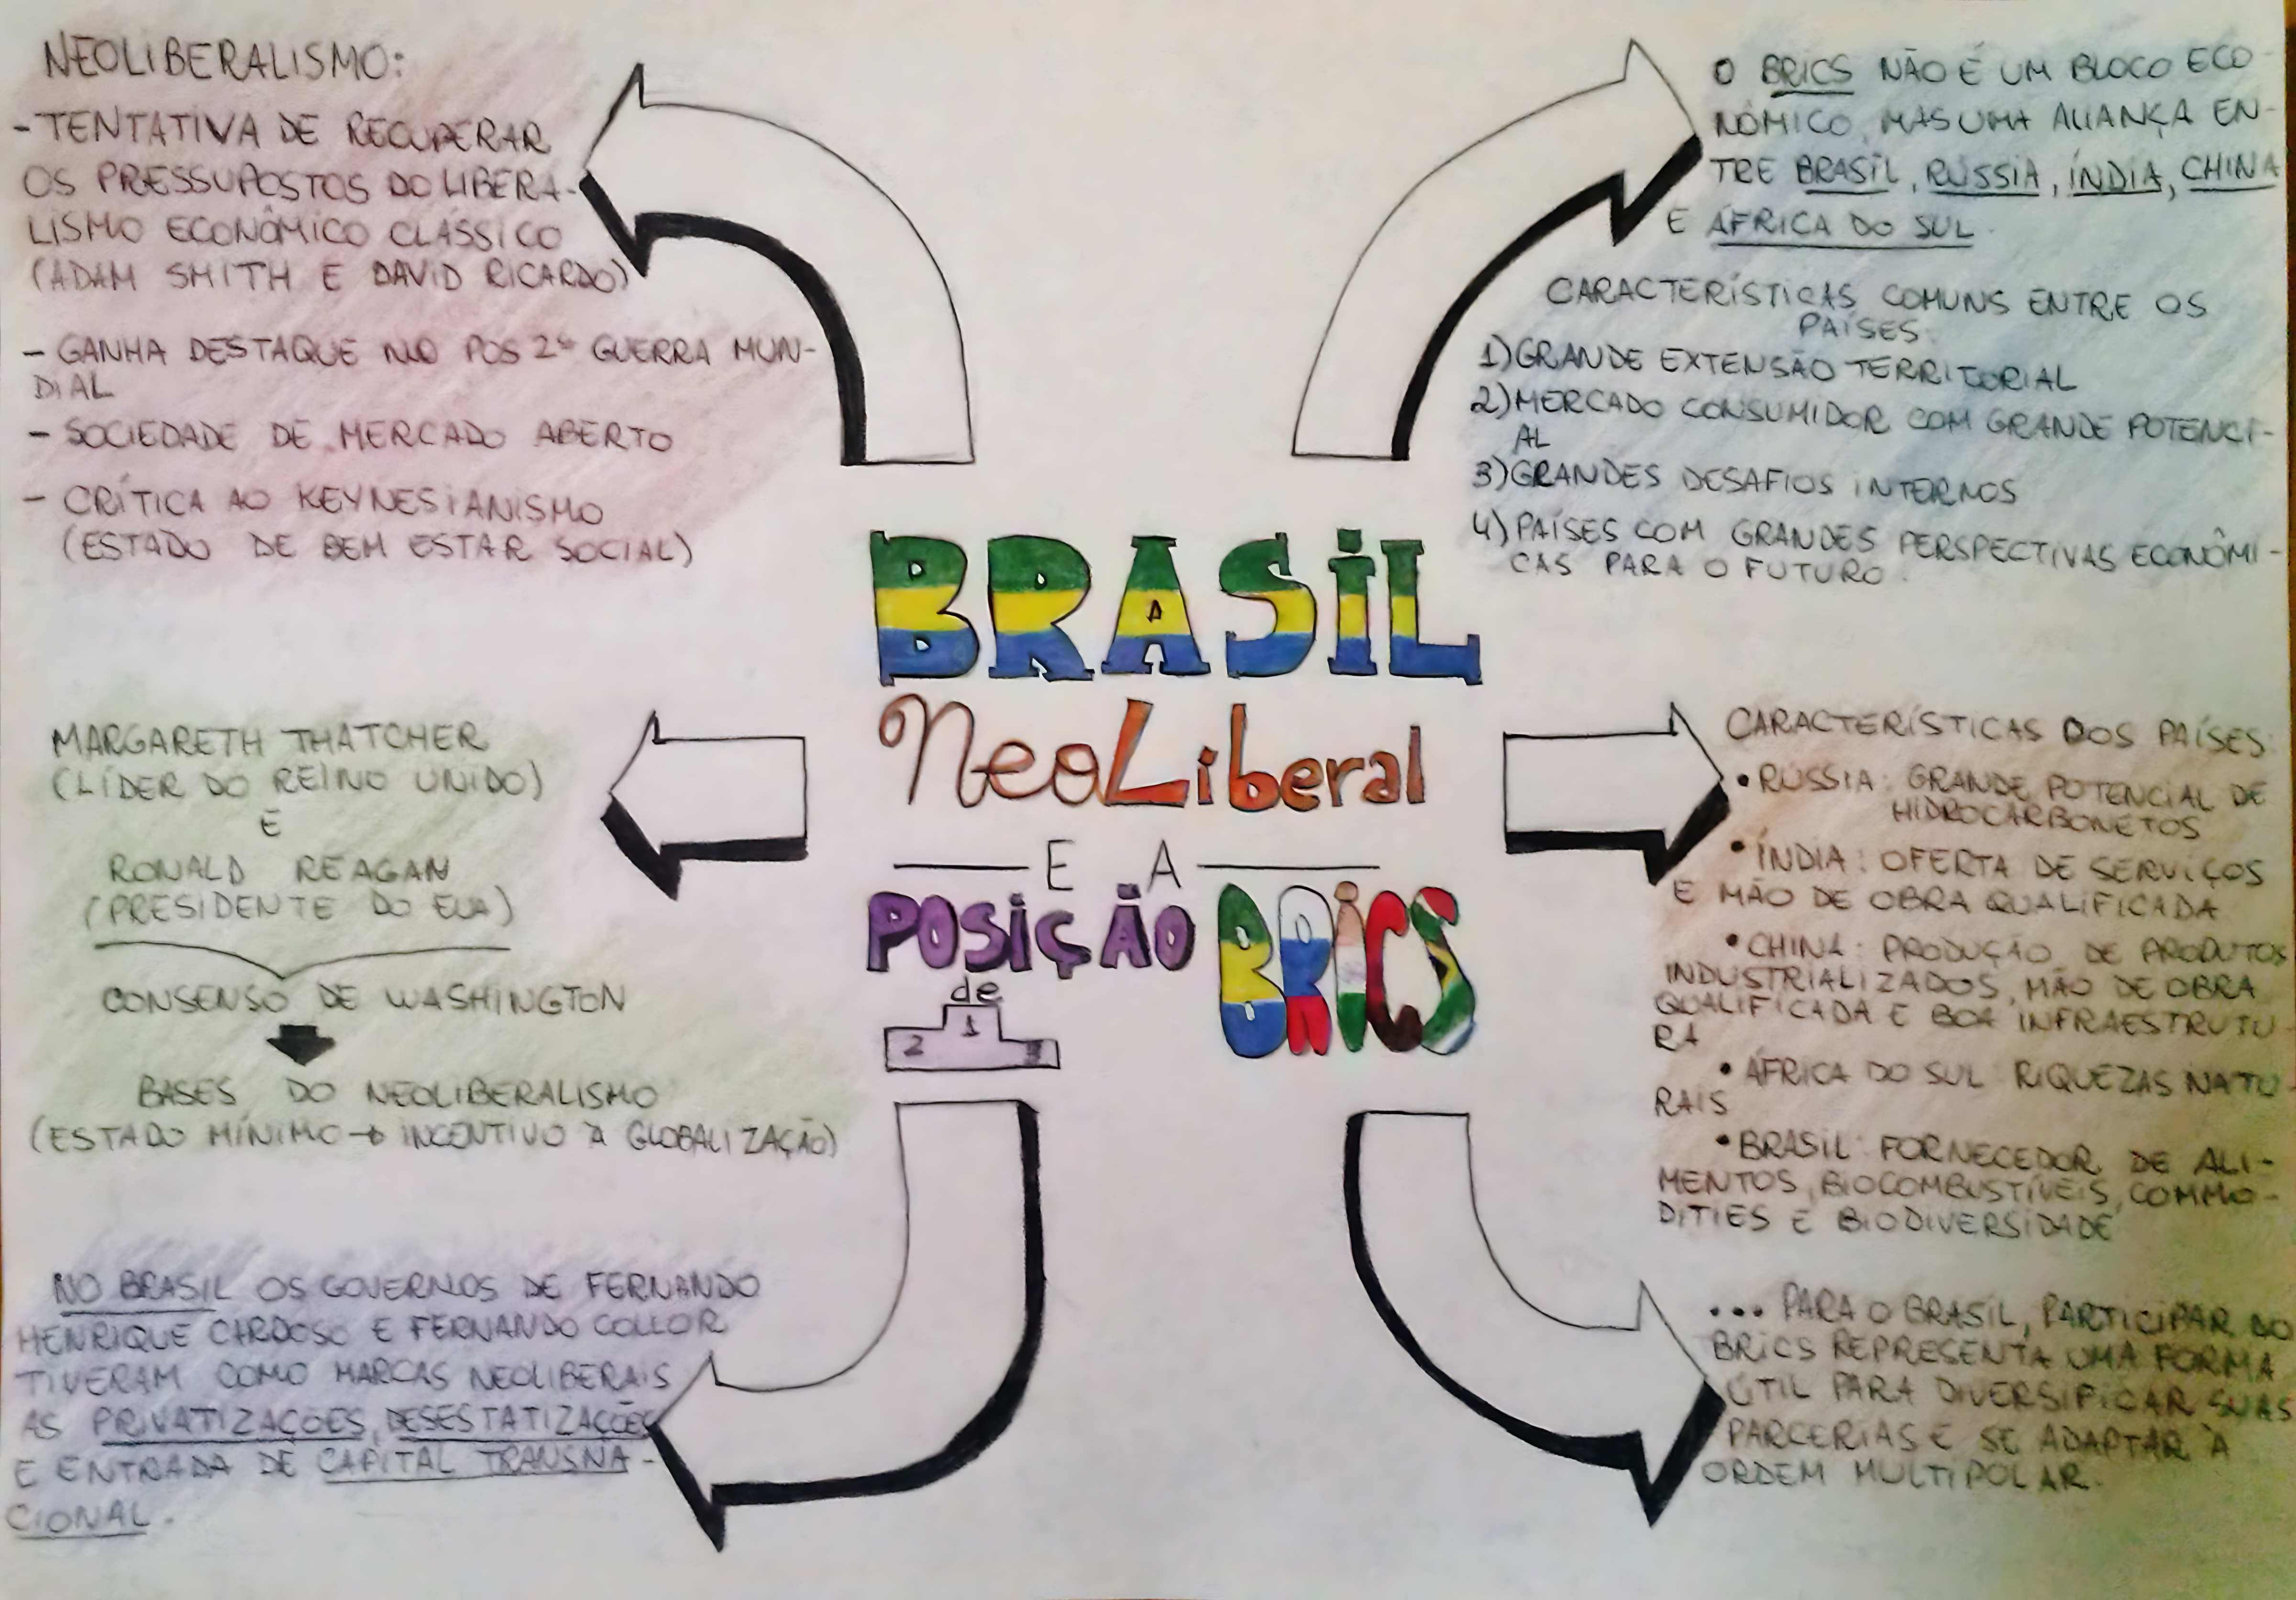 NEOLIBERALISMO:
- TENTATIVA DE RECUPERAR
OS PRESSUPOSTOS DO LIBERA-
LISMO ECONÔMICO CLÁSSICO
(ADAM SMITH E DAVID RICARDO)
- GANHA DESTAQUE NO PÓS 2ª GUERRA MUN-
DIAL
- SOCIEDADE DE MERCADO ABERTO
- CRÍTICA AO KEYNESIANISMO
(ESTADO DE BEM ESTAR SOCIAL)
MARGARETH THATCHER
(LÍDER DO REINO UNIDO)
E
RONALD REAGAN
(PRESIDENTE DO EUA)
CONSENSO DE WASHINGTON
BASES DO NEOLIBERALISMO
(ESTADO MÍNIMO → INCENTIVO À GLOBALIZAÇÃO)
NO BRASIL OS GOVERNOS DE FERNANDO
HENRIQUE CARDOSO E FERNANDO COLLOR
TIVERAM COMO MARCAS NEOLIBERAIS
AS PRIVATIZAÇÕES, DESESTATIZAÇÕES
E ENTRADA DE CAPITAL TRANSNA-
CIONAL.
BRASIL
NeoLiberal
E A
POSIÇÃO
de
1
2
3
BRICS
O BRICS NÃO É UM BLOCO ECO-
NÔMICO, MAS UMA ALIANÇA EN-
TRE BRASIL, RÚSSIA, ÍNDIA, CHINA
E ÁFRICA DO SUL.
CARACTERÍSTICAS COMUNS ENTRE OS
PAÍSES:
1) GRANDE EXTENSÃO TERRITORIAL
2) MERCADO CONSUMIDOR COM GRANDE POTENCI-
AL
3) GRANDES DESAFIOS INTERNOS
4) PAÍSES COM GRANDES PERSPECTIVAS ECONÔMI-
CAS PARA O FUTURO.
CARACTERÍSTICAS DOS PAÍSES:
• RÚSSIA: GRANDE POTENCIAL DE
HIDROCARBONETOS
• ÍNDIA: OFERTA DE SERVIÇOS
E MÃO DE OBRA QUALIFICADA
• CHINA: PRODUÇÃO DE PRODUTOS
INDUSTRIALIZADOS, MÃO DE OBRA
QUALIFICADA E BOA INFRAESTRUTU-
RA
• ÁFRICA DO SUL: RIQUEZAS NATU
RAIS
• BRASIL: FORNECEDOR DE ALI-
MENTOS, BIOCOMBUSTÍVEIS, COMMO-
DITIES E BIODIVERSIDADE
... PARA O BRASIL, PARTICIPAR DO
BRICS REPRESENTA UMA FORMA
ÚTIL PARA DIVERSIFICAR SUAS
PARCERIAS E SE ADAPTAR À
ORDEM MULTIPOLAR.